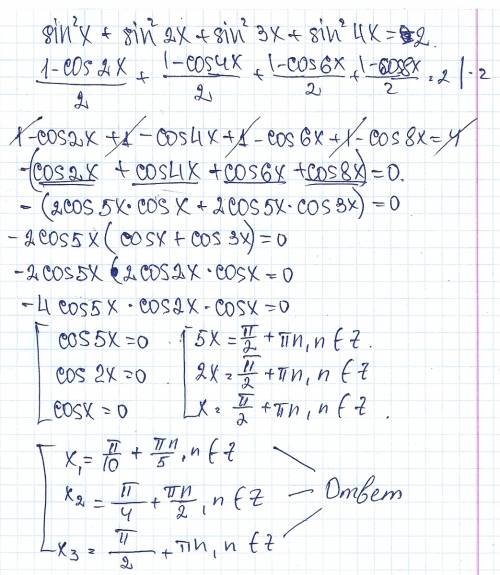 sin²x + sin² 2x + sin² 3x + sin² 4x = 2.
(1-cos2x)/2 + (1-cos4x)/2 + (1-cos6x)/2 + (1-cos8x)/2 = 2 | · 2
1-cos2x + 1 - cos4x + 1 - cos6x + 1 - cos8x = 4
-(cos2x + cos4x + cos6x + cos8x) = 0.
- (2cos5x · cosx + 2cos5x · cos3x) = 0
-2cos5x (cosx + cos3x) = 0
-2cos5x · 2cos2x · cosx = 0
-4cos5x · cos2x · cosx = 0
[ cos5x = 0 [ 5x = π/2 + πn, n ∈ Z.
cos2x = 0 2x = π/2 + πn, n ∈ Z
cosx = 0 x = π/2 + πn, n ∈ Z.
[ x₁ = π/10 + πn/5, n ∈ Z
x₂ = π/4 + πn/2, n ∈ Z - Ответ
x₃ = π/2 + πn, n ∈ Z